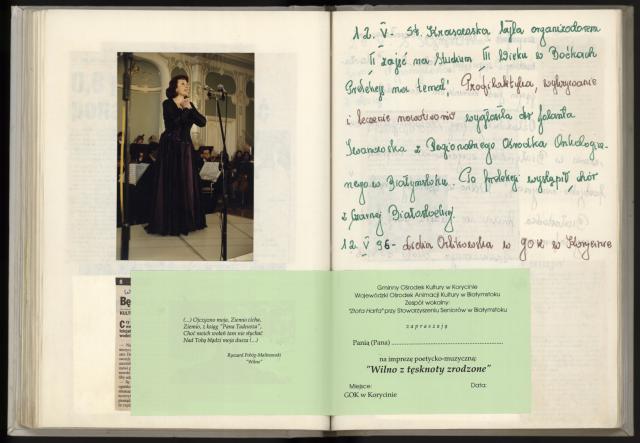 12. V. St. Krasowska była organizatorem
II zajęć na Studium III Wieku w Boćkach
Prelekcję na temat: Profilaktyka, wykrywanie
i leczenie nowotworów wygłosiła dr Jolanta
Iwanowska z Regionalnego Ośrodka Onkologicz-
nego w Białymstoku. Po prelekcji wystąpił chór
z Czarnej Białostockiej
12 V 96 - Lidia Orlikowska w GOK w Korycinie
8
Bę
KULT
(...) Ojczyzno moja, Ziemio cicha,
Ziemio, z ksiąg "Pana Tadeusza",
Choć moich wołań tam nie słychać
Nad Tobą błądzi moja dusza (...)
Ryszard Pobóg-Malinowski
"Wilno"
Gminny Ośrodek Kultury w Korycinie
Wojewódzki Ośrodek Animacji Kultury w Białymstoku
Zespół wokalny:
"Złota Harfa" przy Stowarzyszeniu Seniorów w Białymstoku
zapraszają
Panią (Pana)
na imprezę poetycko-muzyczną:
"Wilno z tęsknoty zrodzone"
Miejsce: Data:
GOK w Korycinie